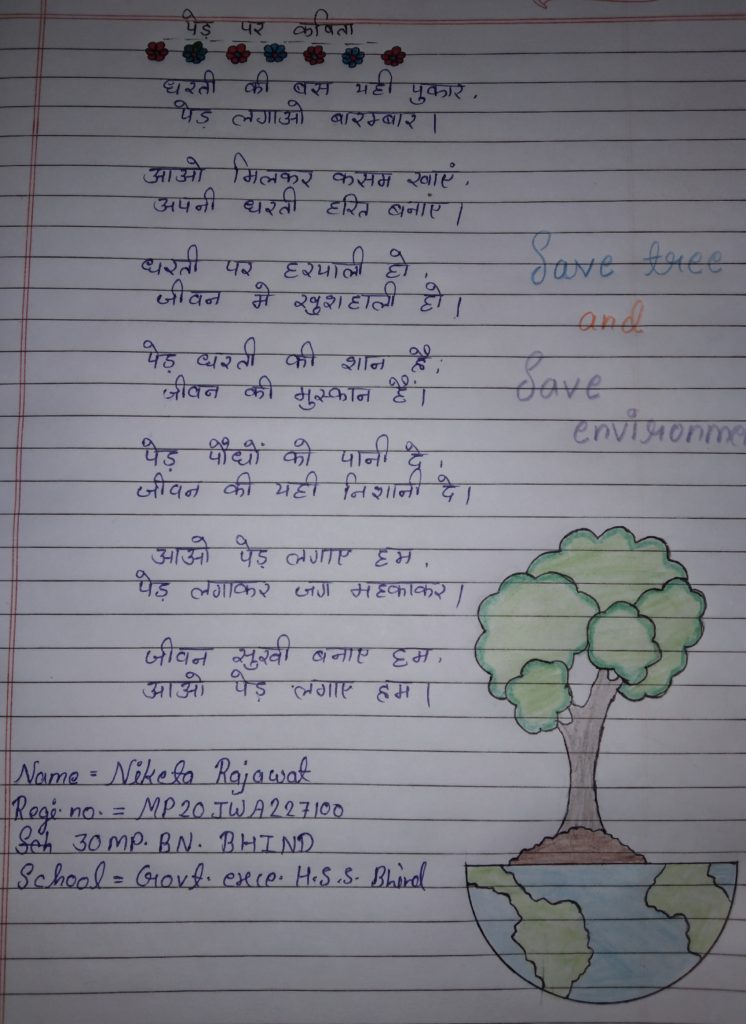 पेड़ पर कविता
धरती की बस यही पुकार,
पेड़ लगाओ बारम्बार।
आओ मिलकर कसम खाएं,
अपनी धरती हरित बनाएं।
धरती पर हरयाली हो,
जीवन मे खुशहाली हो।
पेड़ धरती की शान है,
जीवन की मुस्कान हैं।
पेड़ पौधों को पानी दे,
जीवन की यही निशानी दे।
आओ पेड़ लगाए हम,
पेड़ लगाकर जग महकाकर।
जीवन सुखी बनाए हम,
आओ पेड़ लगाए हम।
Save tree
and
Save
environme
Name = Niketa Rajawat
Regi. no. = MP20JWA227100
30 MP. BN. BHIND
School = Govt. exce. H.S.S. Bhind